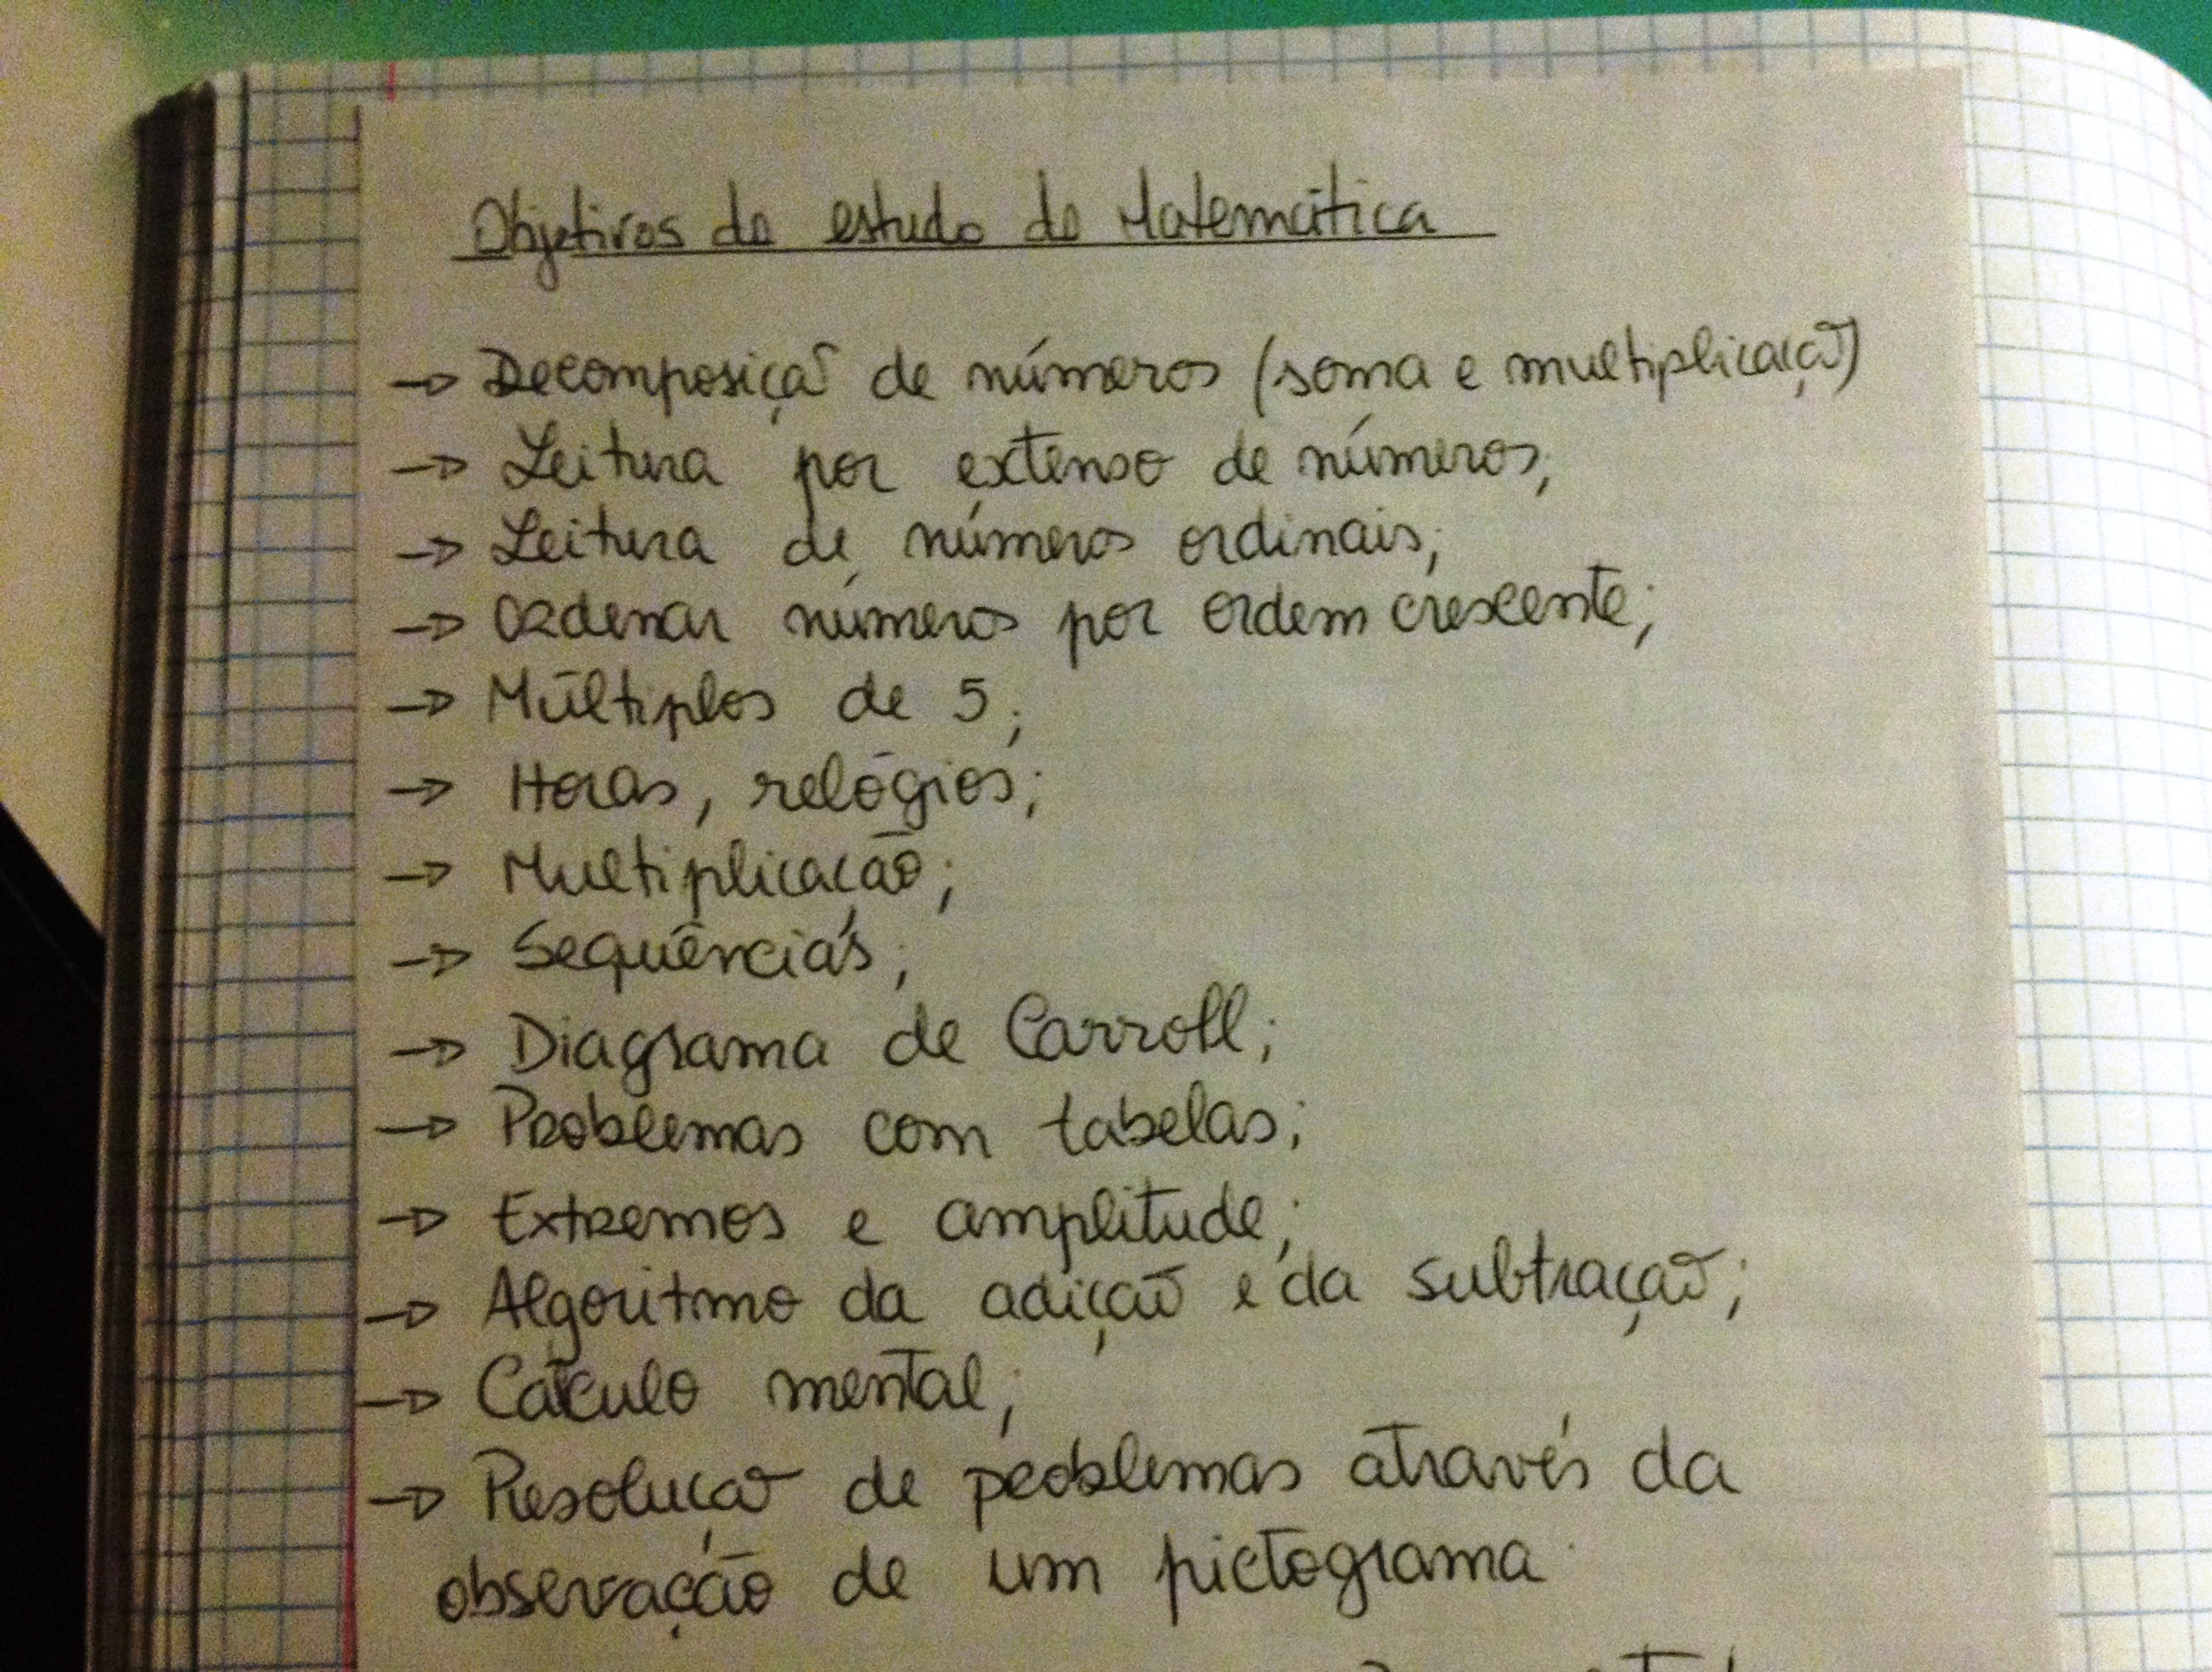 Objetivos de estudo de Matemática
→ Decomposição de números (soma e multiplicação)
→ Leitura por extenso de números;
→ Leitura de números ordinais;
→ Ordenar números por ordem crescente;
→ Múltiplos de 5;
→ Horas, relógios;
→ Multiplicação;
→ Sequências;
→ Diagrama de Carroll;
→ Problemas com tabelas;
→ Extremos e amplitude;
→ Algoritmo da adição e da subtração;
→ Cálculo mental;
→ Resolução de problemas através da
observação de um pictograma